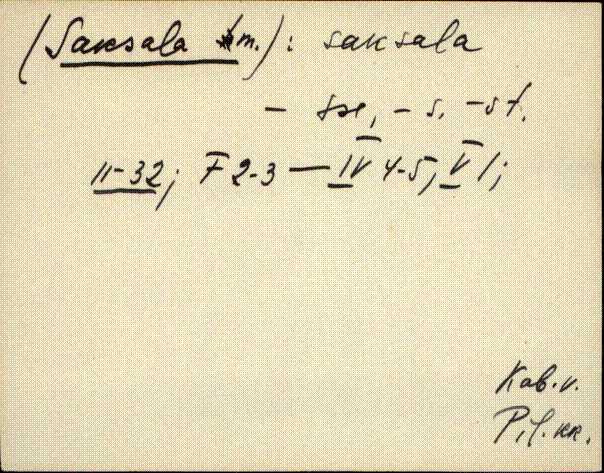 (Saksala m.): saksala
- sse, - s, -st.
11-32; F 2-3 — IV 4-5, V 1;
Kab. v.
Pil. kk.